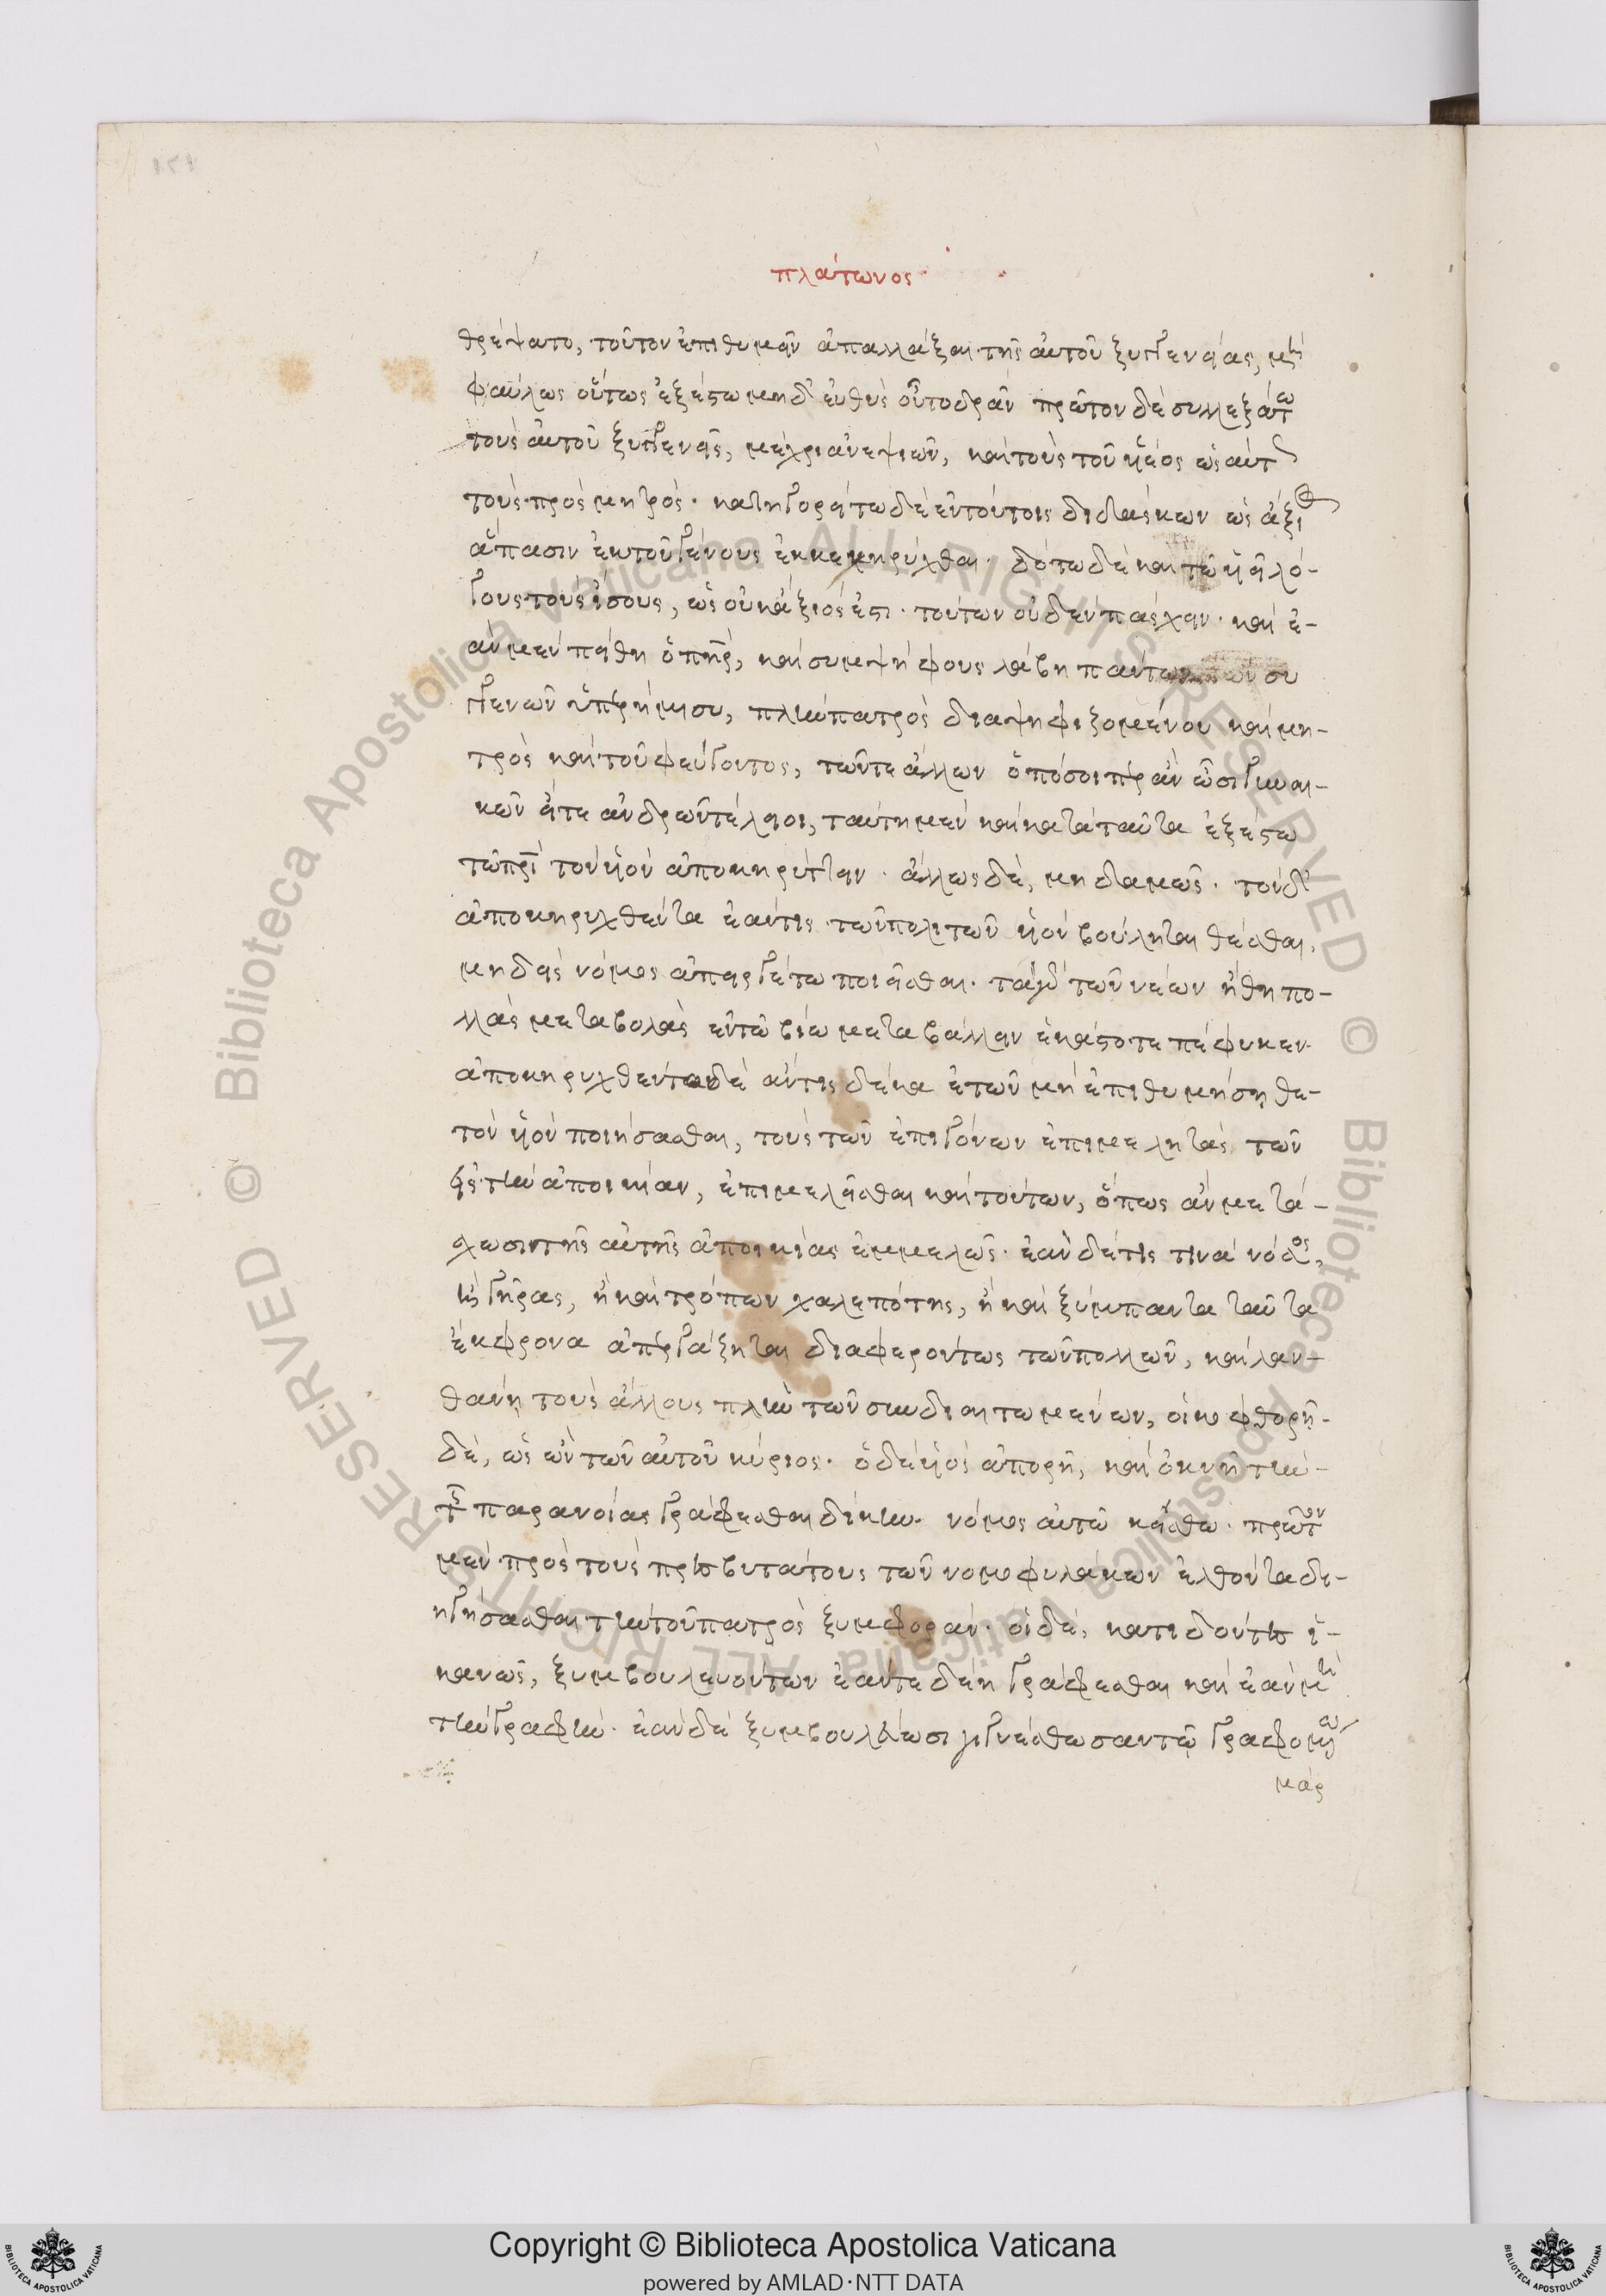 πλάτωνος
θρέψατο, τοῦτον ἐπιθυμεῖν ἀπαλλάξαι τῆς αὐτοῦ ξυγγενείας, μὴ
φαύλως οὕτως ἐξέστω μηδ' εὐθὺς οὕτο δρᾶν πρῶτον δὲ συλλεξάτω
τοὺς αὐτοῦ ξυγγενεῖς, μέχρι ἀνεψιῶν, καὶ τοὺς τοῦ υἱέος ὡσαύτως
τοὺς πρὸς μητρός. κατηγορείτω δὲ ἐν τούτοις διδάσκων ὡς ἄξιος
ἅπασιν ἐκ τοῦ γένους ἐκκεκηρύχθαι. δότω δὲ καὶ τῶ υἱεῖ λό-
γους τοὺς ἴσους, ὡς οὐκ ἄξιός ἐστι τούτων οὐδὲν πάσχειν. καὶ ἐ-
ὰν μὲν πείθη ὁ πηρ, καὶ συμψήφους λάβη πάντων τῶν συ
γγενῶν ὑπὲρ ἥμισυ, πλὴν πατρὸς διαψηφιζομένου καὶ μη-
τρὸς καὶ τοῦ φεύγοντος, τῶν τε ἄλλων ὁπόσοι περ ἂν ὦσι γυναι-
κῶν εἴτε ἀνδρῶν τέλειοι, ταύτη μὲν καὶ κατὰ ταῦτα ἐξέστω
τῶ πρι τὸν υἱὸν ἀποκηρύττειν. ἄλλως δὲ, μηδαμῶς. τὸν δ'
ἀποκηρυχθέντα ἐάν τις τῶν πολιτῶν υἱὸν βούληται θέσθαι,
μηδεὶς νόμος ἀπειργέτω ποιεῖσθαι. τὰ γὰρ τῶν νέων ἤθη πο-
λλὰς μεταβολὰς ἐν τῶ βίω μεταβάλλειν ἑκάστοτε πέφυκεν.
ἀποκηρυχθέντα δὲ ἄν τις δέκα ἐτῶν μὴ ἐπιθυμήσῃ θε-
τὸν υἱὸν ποιήσασθαι, τοὺς τῶν ἐπιγόνων ἐπιμελητὰς τῶν
εἰς τὴν ἀποικίαν, ἐπιμελεῖσθαι καὶ τούτων, ὅπως ἂν μετά-
σχωσι τῆς αὐτῆς ἀποικίας ἐμμελῶς. ἐὰν δέ τίς τινα νόσος,
ἢ γῆρας, ἢ καὶ τρόπων χαλεπότης, ἢ καὶ ξύμπαντα ταῦτα
ἔκφρονα ἀπεργάζηται διαφερόντως τῶν πολλῶν, καὶ λαν-
θάνῃ τοὺς ἄλλους πλὴν τῶν συνδιαιτωμένων, οἰκοφθορῇ
δὲ, ὡς ὢν τῶν αὑτοῦ κύριος. ὁ δὲ υἱὸς ἀπορῇ, καὶ ὀκνῇ τὴν
τῆς παρανοίας γράφεσθαι δίκην. νόμος αὐτῶ κείσθω. πρῶτον
μὲν πρὸς τοὺς πρεσβυτάτους τῶν νομοφυλάκων ἐλθόντα δι-
ηγήσασθαι τὴν τοῦ πατρὸς ξυμφοράν. οἱ δὲ, κατιδόντες ἱ-
κανῶς, ξυμβουλευόντων ἐάν τε δέη γράφεσθαι καὶ ἐὰν μὴ
τὴν γραφήν. ἐὰν δὲ ξυμβουλεύωσι γιγνέσθωσαν τῷ γραφομένω
μάρ
Copyright © Biblioteca Apostolica Vaticana
powered by AMLAD·NTT DATA